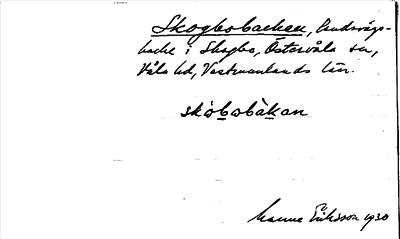 Skogbobacken, landsvägs-
backe i Skogbo, Östervåla sn,
Våla hd, Västmanlands län.
skòbobàkan
Manne Eriksson 1930